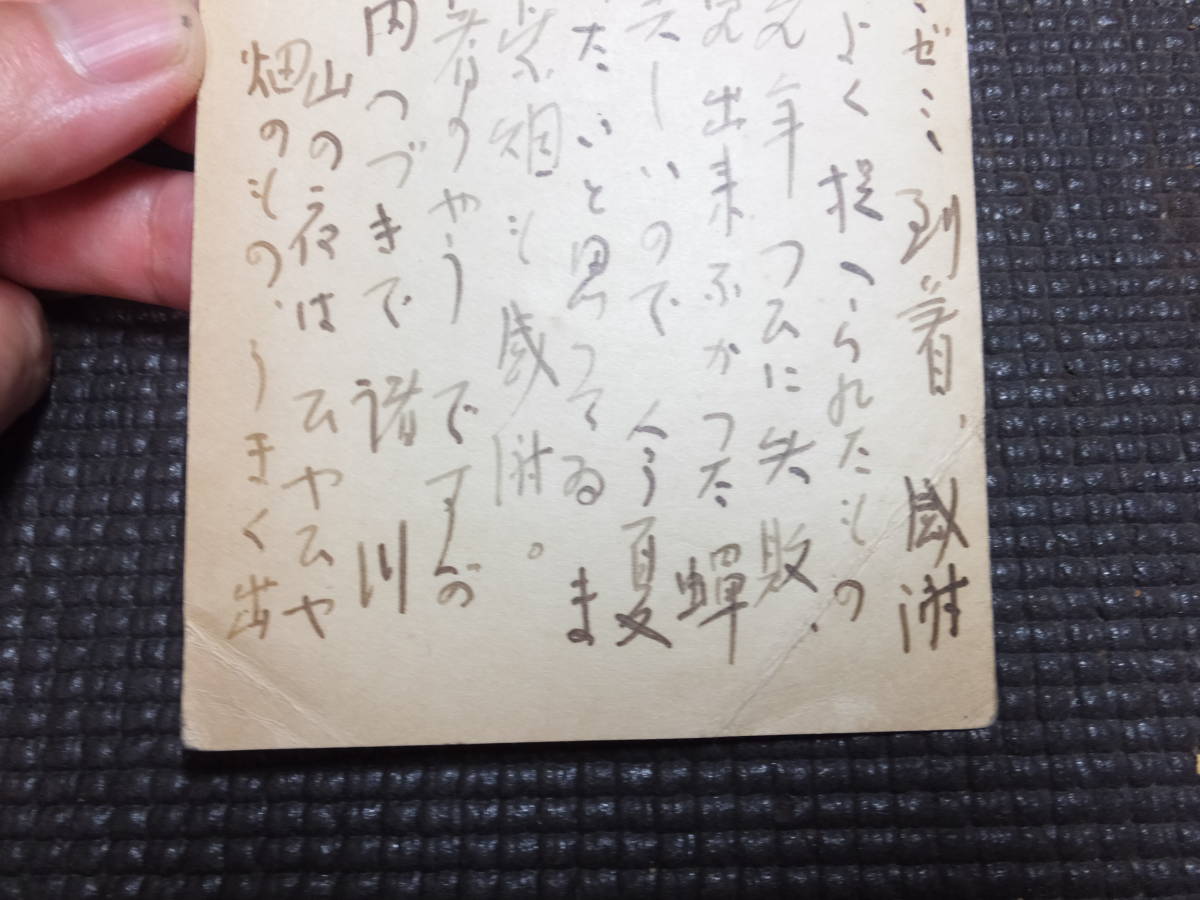 ゼミ到着、感謝
よく捉へられたもの
年つひに失敗、
出来なかつた蝉
しいので今夏
たいと思つてゐま
も感謝。
のやうですが
内つづきで諸川
山の夜はひやひや
畑のもの、うまく出